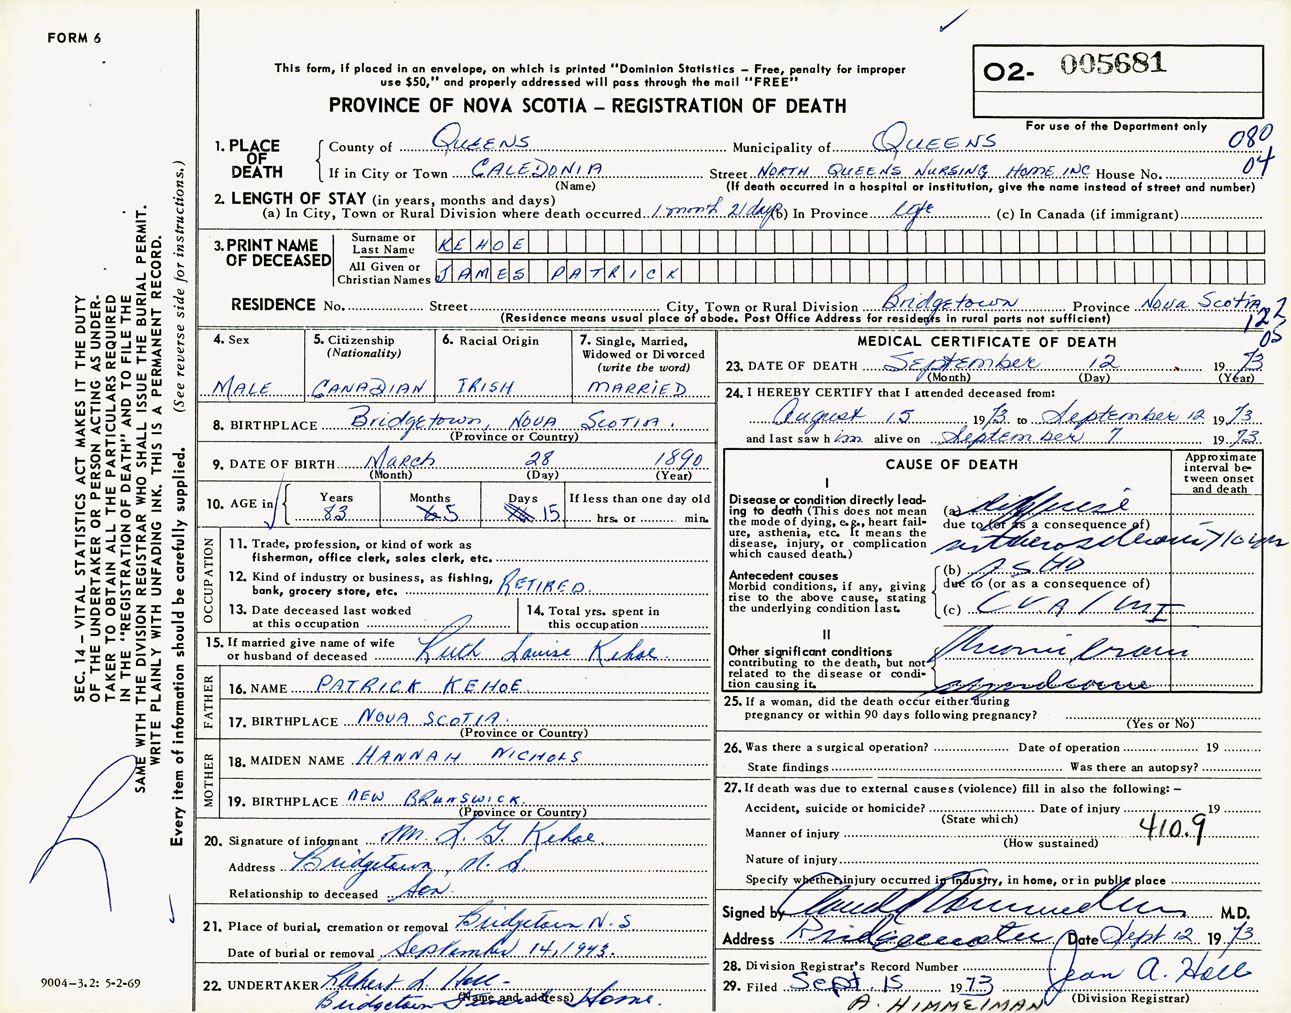 FORM 6
This form, if placed in an envelope, on which is printed "Dominion Statistics – Free, penalty for improper
use $50," and properly addressed will pass through the mail "FREE"
PROVINCE OF NOVA SCOTIA – REGISTRATION OF DEATH
02- 005681
For use of the Department only
080
04
1. PLACE OF DEATH
County of QUEENS Municipality of QUEENS
If in City or Town CALEDONIA Street NORTH QUEENS NURSING HOME INC House No.
(Name) (If death occurred in a hospital or institution, give the name instead of street and number)
2. LENGTH OF STAY (in years, months and days)
(a) In City, Town or Rural Division where death occurred 1 month 21 days (b) In Province life (c) In Canada (if immigrant)
3. PRINT NAME OF DECEASED
Surname or Last Name KEHOE
All Given or Christian Names JAMES PATRICK
RESIDENCE No. Street City, Town or Rural Division Bridgetown Province Nova Scotia
(Residence means usual place of abode. Post Office Address for residents in rural parts not sufficient)
122
05
4. Sex MALE
5. Citizenship (Nationality) CANADIAN
6. Racial Origin IRISH
7. Single, Married, Widowed or Divorced (write the word) MARRIED
8. BIRTHPLACE Bridgetown, NOVA SCOTIA.
(Province or Country)
9. DATE OF BIRTH March 28 1890
(Month) (Day) (Year)
10. AGE in Years 83 Months 5 Days 15 If less than one day old hrs. or min.
OCCUPATION
11. Trade, profession, or kind of work as
fisherman, office clerk, sales clerk, etc.
12. Kind of industry or business, as fishing,
bank, grocery store, etc. RETIRED.
13. Date deceased last worked
at this occupation
14. Total yrs. spent in
this occupation
15. If married give name of wife
or husband of deceased Ruth Louise Kehoe
FATHER
16. NAME PATRICK KEHOE
17. BIRTHPLACE NOVA SCOTIA.
(Province or Country)
MOTHER
18. MAIDEN NAME HANNAH NICHOLS
19. BIRTHPLACE NEW BRUNSWICK.
(Province or Country)
20. Signature of informant Kehoe
Address Bridgetown, N.S.
Relationship to deceased Son.
21. Place of burial, cremation or removal Bridgetown N.S
Date of burial or removal September 14, 1973.
22. UNDERTAKER Robert L. Hall -
(Name and address)
Bridgetown Funeral Home.
MEDICAL CERTIFICATE OF DEATH
23. DATE OF DEATH September 12 1973
(Month) (Day) (Year)
24. I HEREBY CERTIFY that I attended deceased from:
August 15 1973 to September 12 1973
and last saw him alive on September 7 1973
CAUSE OF DEATH
Approximate interval between onset and death
I
Disease or condition directly lead-
ing to death (This does not mean
the mode of dying, e.g., heart fail-
ure, asthenia, etc. It means the
disease, injury, or complication
which caused death.)
(a) diffuse
due to (or as a consequence of)
arteriosclerosis 710 yrs
Antecedent causes
Morbid conditions, if any, giving
rise to the above cause, stating
the underlying condition last.
(b) ASHD
due to (or as a consequence of)
(c) CVA / MI
II
Other significant conditions
contributing to the death, but not
related to the disease or condi-
tion causing it.
Chronic brain
syndrome
25. If a woman, did the death occur either during
pregnancy or within 90 days following pregnancy?
(Yes or No)
26. Was there a surgical operation? Date of operation 19
State findings Was there an autopsy?
27. If death was due to external causes (violence) fill in also the following: –
Accident, suicide or homicide? Date of injury 19
(State which)
Manner of injury 410.9
(How sustained)
Nature of injury
Specify whether injury occurred in industry, in home, or in public place
Signed by M.D.
Address Bridgewater Date Sept 12 1973
28. Division Registrar's Record Number
29. Filed Sept. 15 1973 Jean A. Hall
(Division Registrar)
A. HIMMELMAN
SEC. 14 – VITAL STATISTICS ACT MAKES IT THE DUTY
OF THE UNDERTAKER OR PERSON ACTING AS UNDER-
TAKER TO OBTAIN ALL THE PARTICULARS REQUIRED
IN THE "REGISTRATION OF DEATH" AND TO FILE THE
SAME WITH THE DIVISION REGISTRAR WHO SHALL ISSUE THE BURIAL PERMIT.
WRITE PLAINLY WITH UNFADING INK. THIS IS A PERMANENT RECORD.
Every item of information should be carefully supplied. (See reverse side for instructions.)
9004–3.2: 5-2-69